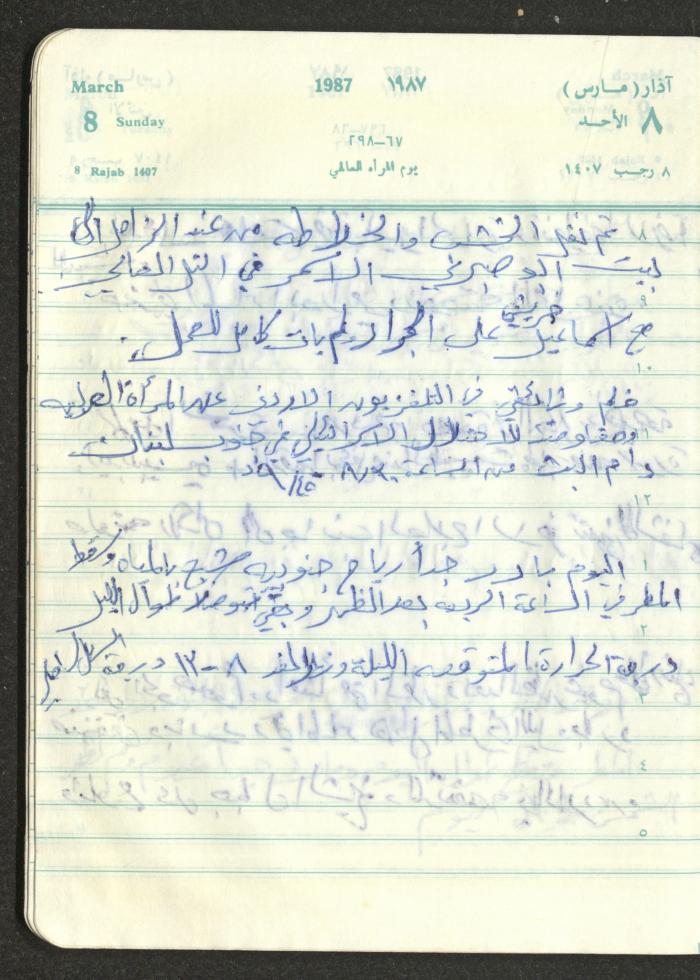 March 1987 ١٩٨٧ آذار (مارس)
8 Sunday ٨ الأحد
٦٧-٢٩٨
8 Rajab 1407 يوم المرأه العالمي ٨ رجب ١٤٠٧
٨ تم نقل الخشب والخلاطه من عند الزامل الى
بيت ابو صبري الاسمر في التل
٩
مع اسماعيل على الجرار ولم بات كامل للعمل.
١٠
فلم وثائقي في التلفزيون الاردني عن المرأة العربيه
ومقاومتها للاحتلال الاسرائيلي في جنوب لبنان
دام البث من الساعة
١٢
١ اليوم بارد جداً رياح جنوبيه مشبع بالمياه وسقط
المطر في الساعة الربعه بعد الظهر وبقي متواصلاً طوال الليل
٢
درجة الحرارة المتوقعه الليلة ونهار الغد ٨-١٣ درجة
٣
٤
٥